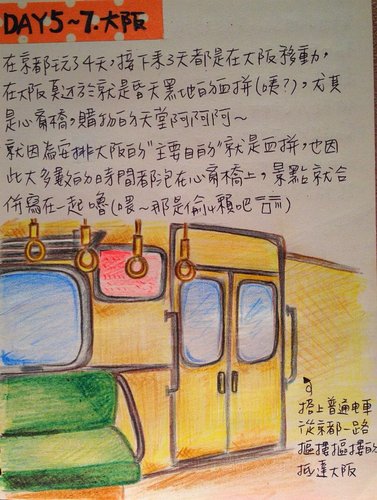 DAY5~7.大阪
在京都玩了4天,接下來3天都是在大阪移動,
在大阪真逃不就是昏天黑地的血拼(咦?),尤其
是心齋橋,購物的天堂阿阿阿~
就因為安排大阪的"主要目的"就是血拼,也因
此大多數的時間都泡在心齋橋上,景點就合
併寫在一起嚕(喂~那是偷懶吧
搭上普通电車
從京都一路
摳摟摳摟的
抵達大阪